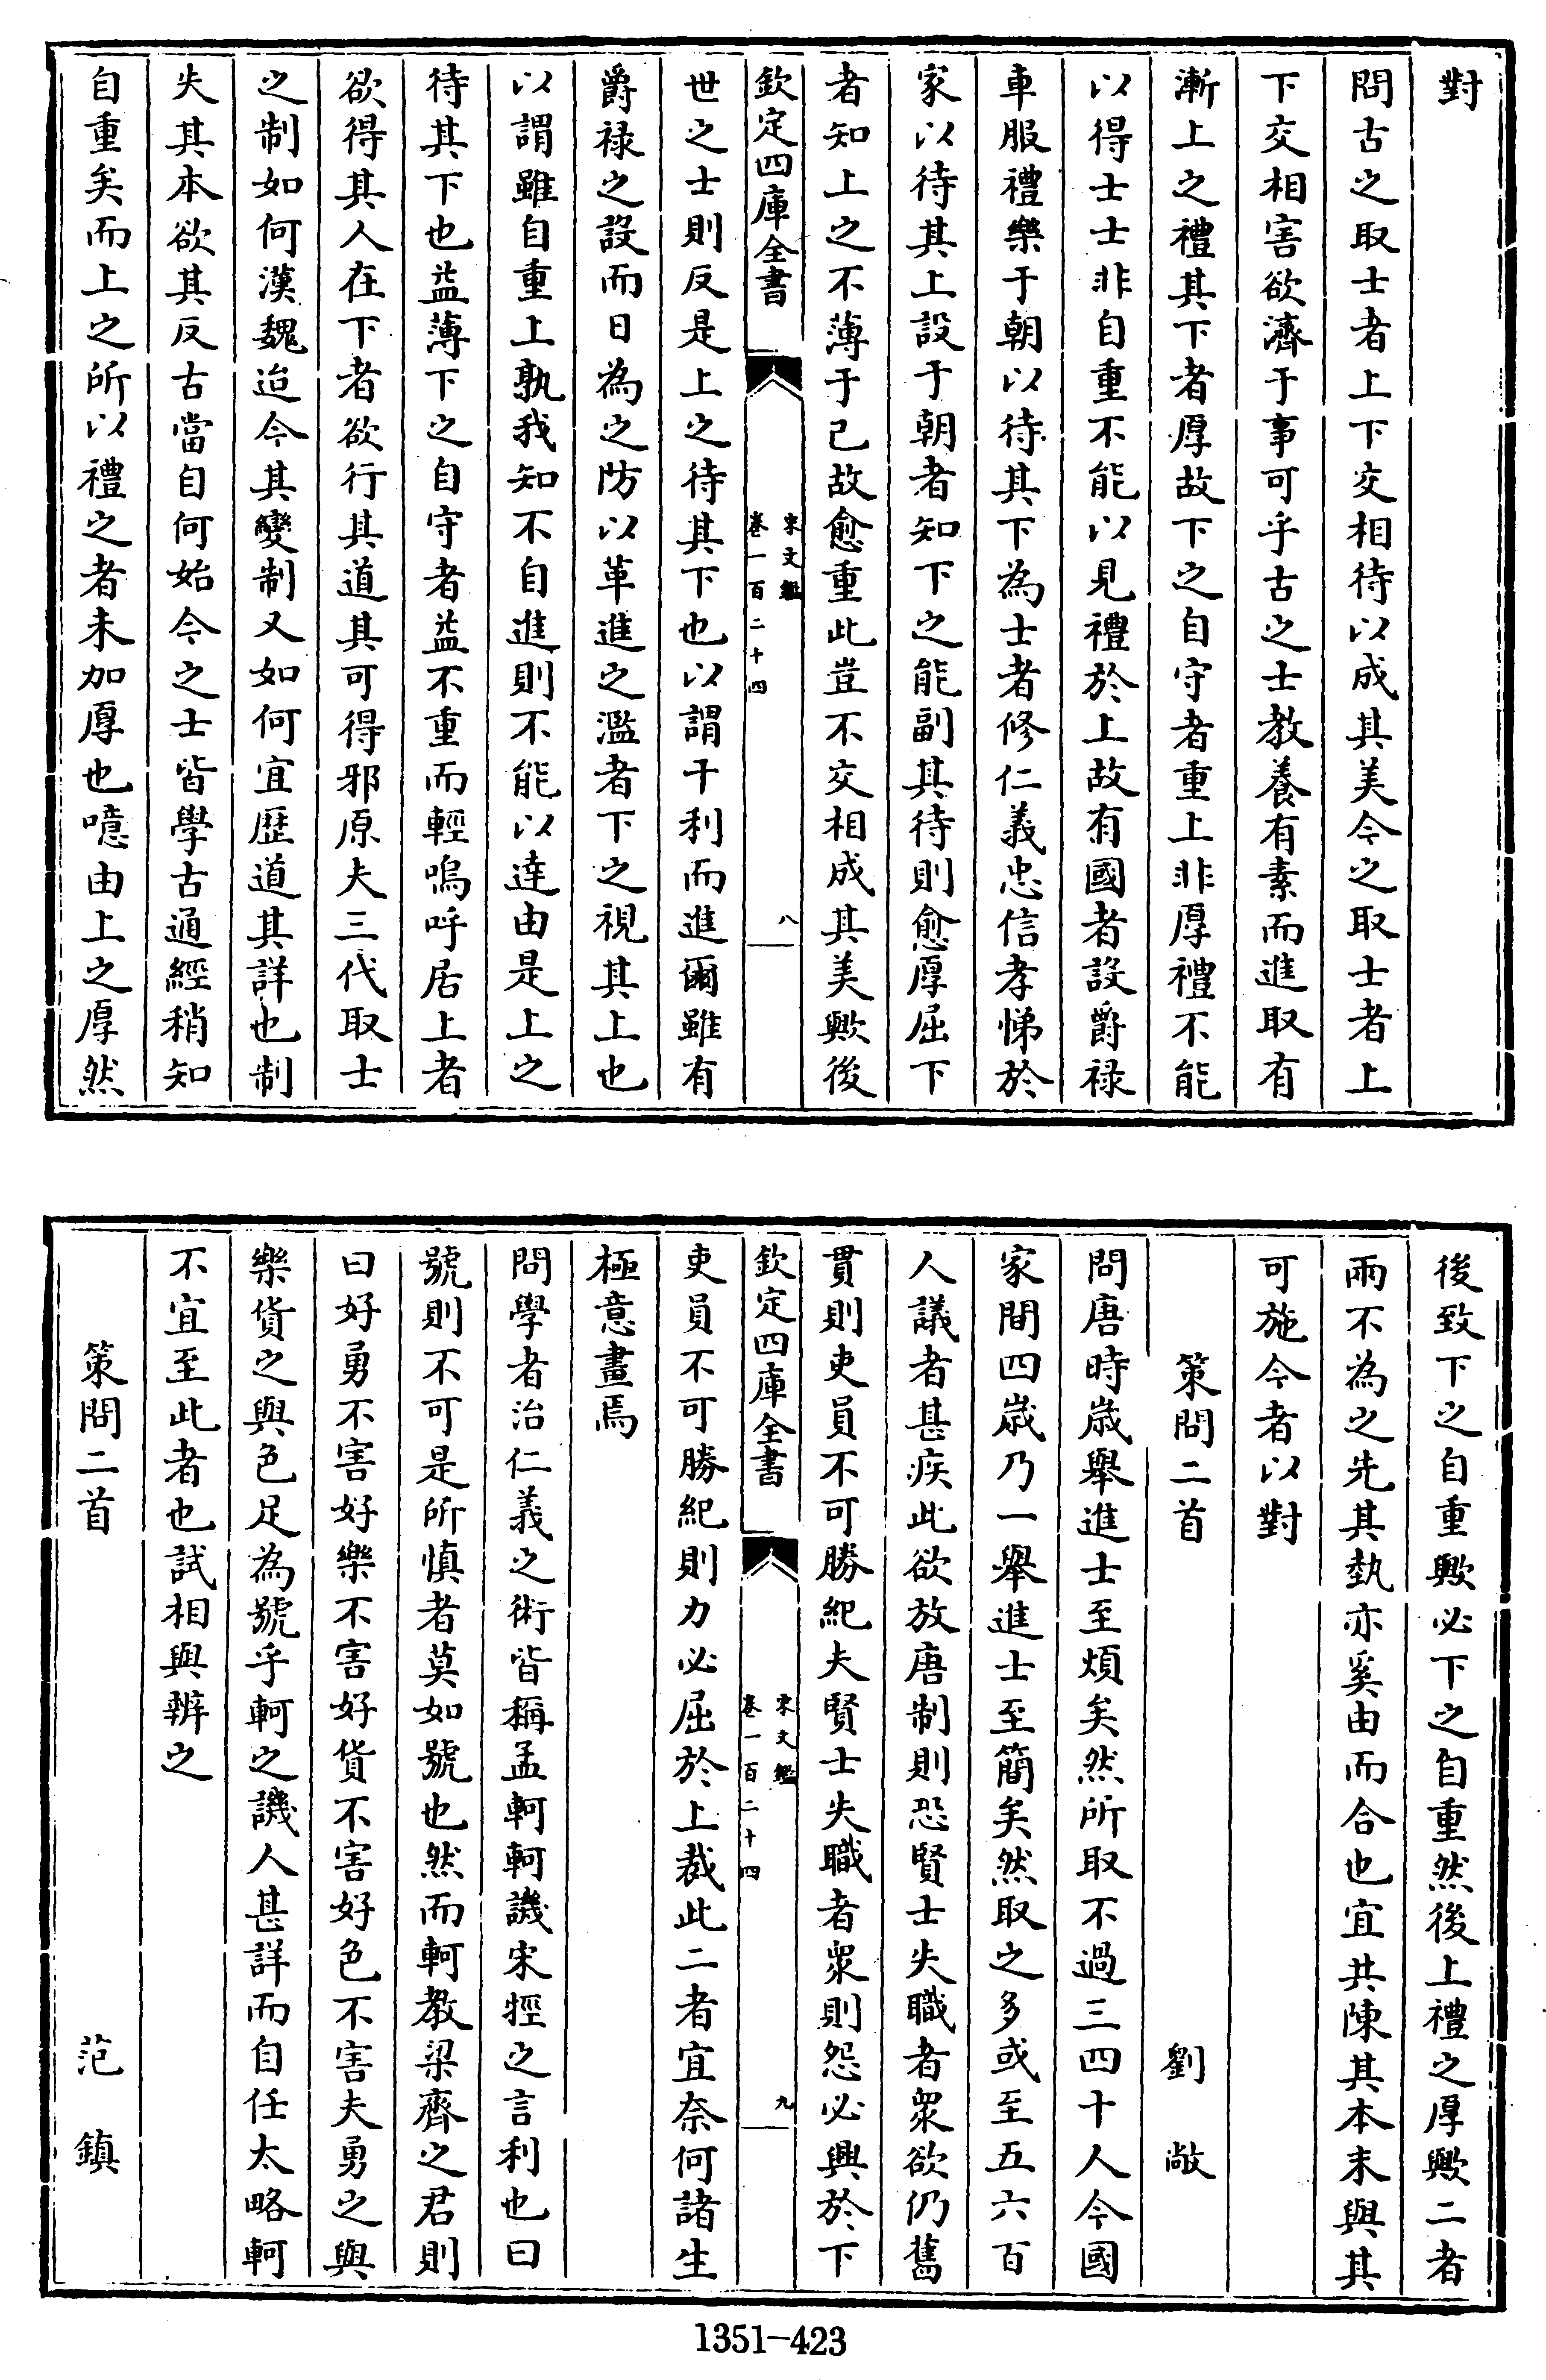 對
問古之取士者上下交相待以成其美今之取士者上
下交相害欲濟于事可乎古之士教養有素而進取有
漸上之禮其下者厚故下之自守者重上非厚禮不能
以得士士非自重不能以見禮於上故有國者設爵禄
車服禮樂于朝以待其下為士者修仁義忠信孝悌於
家以待其上設于朝者知下之能副其待則愈厚屈下
者知上之不薄于己故愈重此豈不交相成其美歟後
欽定四庫全書
宋文鑑
卷一百二十四
八
世之士則反是上之待其下也以謂干利而進爾雖有
爵禄之設而日為之防以革進之濫者下之視其上也
以謂雖自重上孰我知不自進則不能以達由是上之
待其下也益薄下之自守者益不重而輕嗚呼居上者
欲得其人在下者欲行其道其可得邪原夫三代取士
之制如何漢魏迨今其變制又如何宜歷道其詳也制
失其本欲其反古當自何始今之士皆學古通經稍知
自重矣而上之所以禮之者未加厚也噫由上之厚然
後致下之自重歟必下之自重然後上禮之厚歟二者
兩不為之先其埶亦奚由而合也宜共陳其本末與其
可施今者以對
策問二首
劉敞
問唐時歲舉進士至煩矣然所取不過三四十人今國
家間四歲乃一舉進士至簡矣然取之多或至五六百
人議者甚疾此欲放唐制則恐賢士失職者衆欲仍舊
貫則吏員不可勝紀夫賢士失職者衆則怨必興於下
欽定四庫全書
宋文鑑
卷一百二十四
九
吏員不可勝紀則力必屈於上裁此二者宜奈何諸生
極意畫焉
問學者治仁義之術皆稱孟軻軻譏宋牼之言利也曰
號則不可是所慎者莫如號也然而軻教梁齊之君則
曰好勇不害好樂不害好貨不害好色不害夫勇之與
樂貨之與色足為號乎軻之譏人甚詳而自任太略軻
不宜至此者也試相與辨之
策問二首
范鎮
1351-423